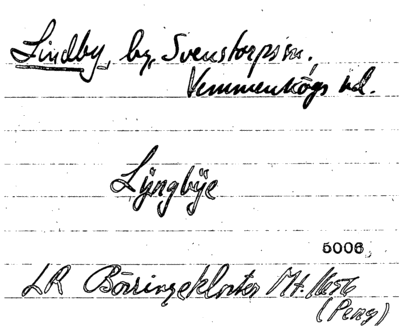 Lindby, by, Svenstorps sn.
Vemmenhögs hd.
Lÿngbÿe
5006
LR Börringekloster Mt. 1656
(Peng)